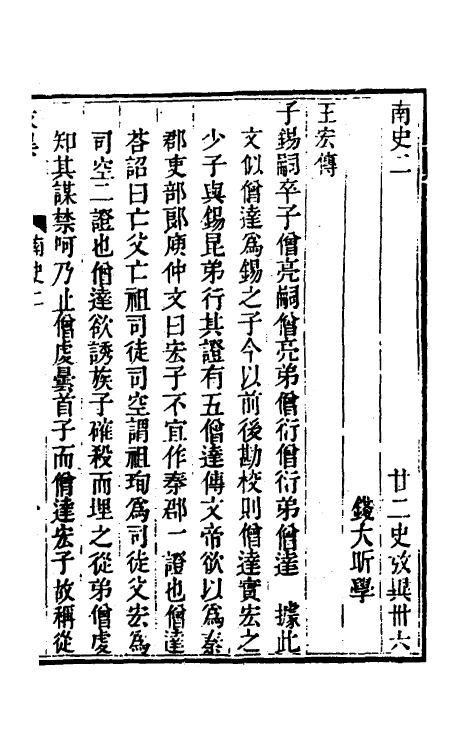 南史二　廿二史攷異卅六
錢大昕學
王宏傳
子錫嗣卒子僧亮嗣僧亮弟僧衍僧衍弟僧達　據此
文似僧達爲錫之子今以前後勘校則僧達實宏之
少子與錫昆弟行其證有五僧達傳文帝欲以爲秦
郡吏部郞庾仲文曰宏子不宜作秦郡一證也僧達
荅詔曰亡父亡祖司徒司空謂祖珣爲司徒父宏爲
司空二證也僧達欲誘族子確殺而埋之從弟僧虔
知其謀禁呵乃止僧虔曇首子而僧達宏子故稱從
南史二